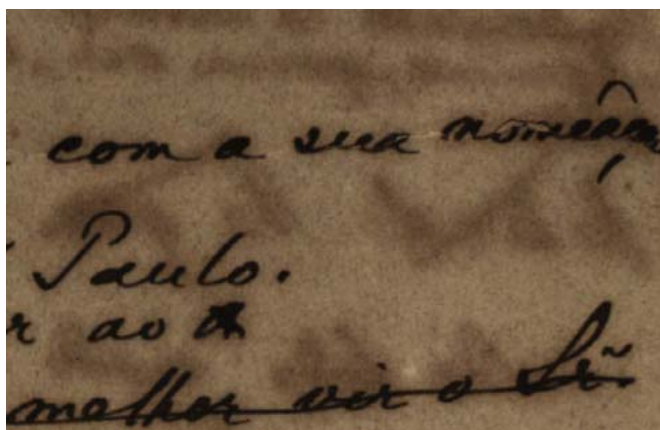 com a sua nomeação
Paulo.
ao
melhor vir o Sr.